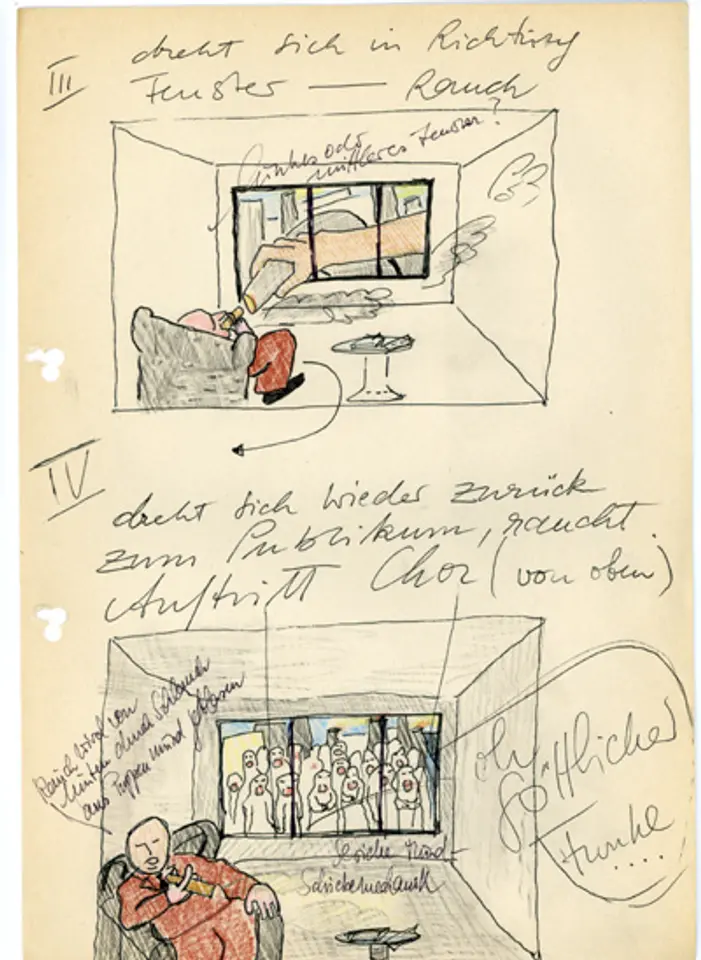 III
dreht sich in Richtung
Fenster — Rauch
oder
mittleres Fenster?
IV
dreht sich wieder zurück
zum Publikum, raucht.
Auftritt Chor (von oben)
Rauch wird von
hinten durch Schlauch
aus Puppenmund geblasen
oh
Göttlicher
Funke
....
Schiebemechanik